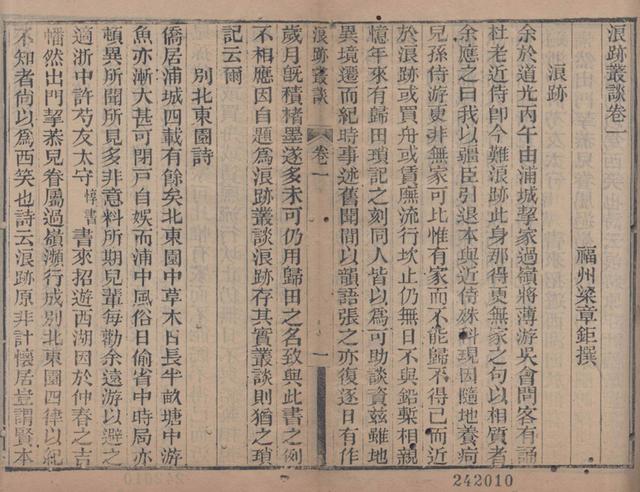 浪跡叢談卷一
福州梁章鉅撰
浪跡
余於道光丙午由浦城挈家過嶺將薄游吳會問客有誦
杜老近侍卽今難浪跡此身那得更無家之句以相質者
余應之曰我以疆臣引退本與近侍殊科現因隨地養疴
兒孫侍游更非無家可比惟有家而不能歸不得已而近
於浪跡或買舟或賃廡流行坎止仍無日不與鉛槧相親
憶年來有歸田瑣記之刻同人皆以爲可助談資茲雖地
異境遷而紀時事述舊聞間以韻語張之亦復逐日有作
歲月旣積楮墨遂多未可仍用歸田之名致與此書之例
不相應因自題爲浪跡叢談浪跡存其實叢談則猶之瑣
記云爾
浪跡叢談
卷一
一
別北東園詩
僑居浦城四載有餘矣北東園中草木日長半畝塘中游
魚亦漸大甚可閉戸自娛而浦中風俗日偸省中時局亦
頓異所聞所見多非意料所期兒輩每勸余遠游以避之
適浙中許芍友太守
惇書
書來招遊西湖因於仲春之吉
幡然出門挈恭兒眷屬過嶺瀕行成別北東園四律以紀
不知者尙以爲西笑也詩云浪跡原非計懷居豈謂賢本
242010